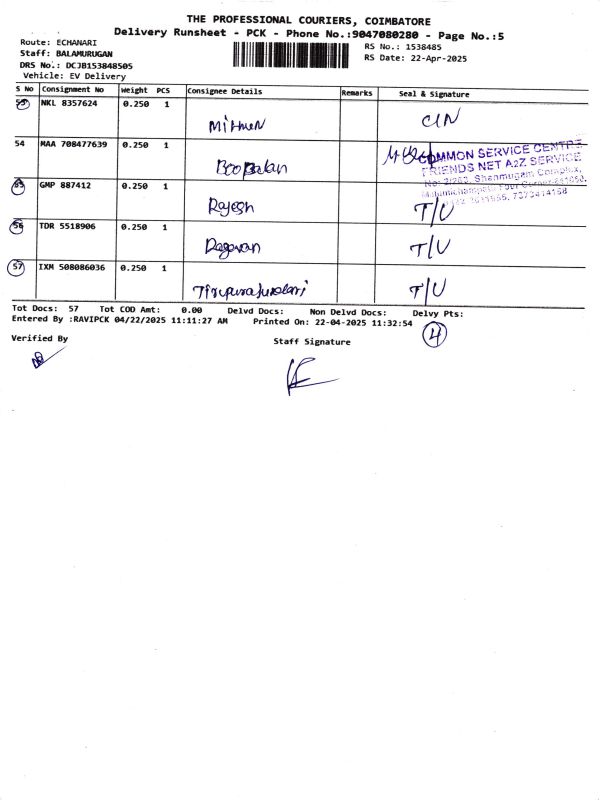 THE PROFESSIONAL COURIERS, COIMBATORE
Delivery Runsheet - PCK - Phone No.:9047080280 - Page No.:5
Route: ECHANARI
Staff: BALAMURUGAN
DRS No.: DCJB153848505
Vehicle: EV Delivery
RS No.: 1538485
RS Date: 22-Apr-2025
S No Consignment No Weight PCS Consignee Details Remarks Seal & Signature
53 NKL 8357624 0.250 1 Mithun C/N
54 MAA 708477639 0.250 1 Boobalan
COMMON SERVICE CENTRE
FRIENDS NET A2Z SERVICE
Shanmugam Complex,
55 GMP 887412 0.250 1 Rajesh T/U
56 TDR 5518906 0.250 1 Ragavan T/U
57 IXM 508086036 0.250 1 T/U
Tot Docs: 57 Tot COD Amt: 0.00 Delvd Docs: Non Delvd Docs: Delvy Pts:
Entered By :RAVIPCK 04/22/2025 11:11:27 AM Printed On: 22-04-2025 11:32:54
4
Verified By
Staff Signature